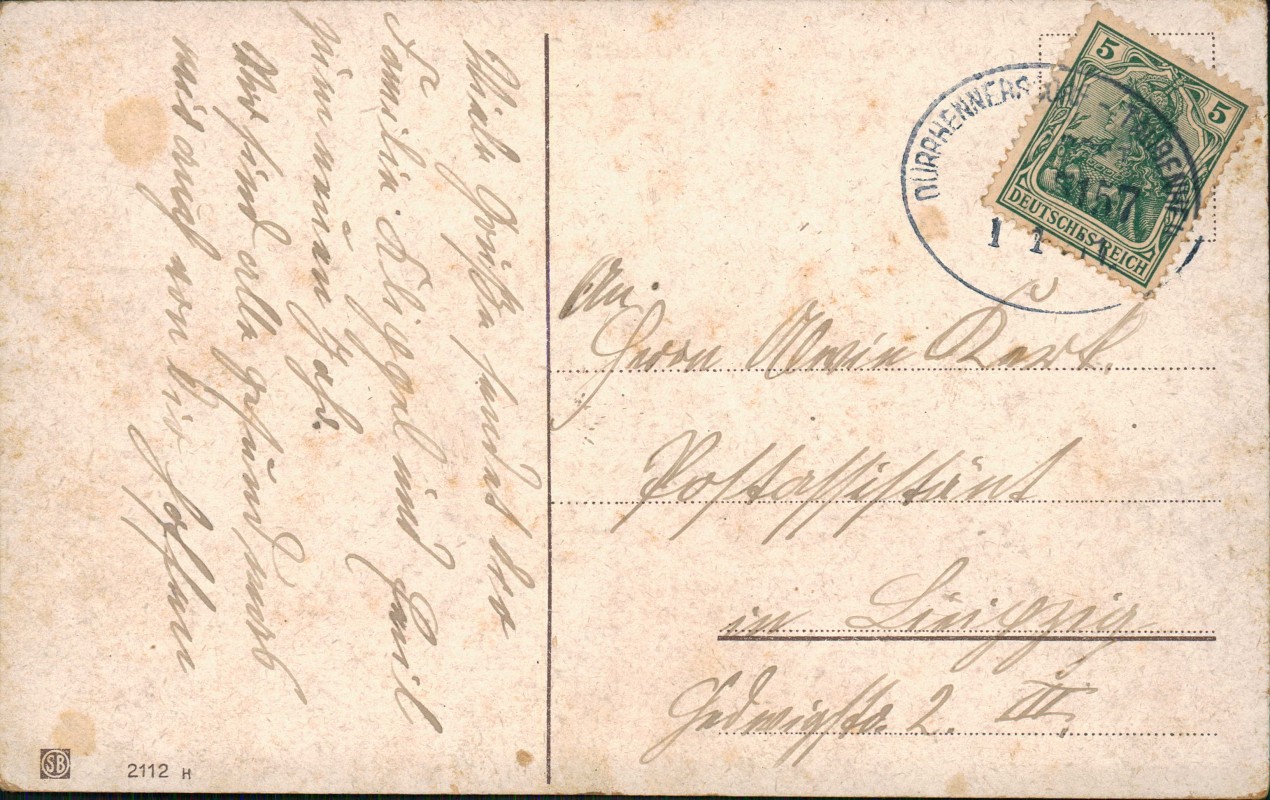 Viele Grüße sendet der
Familie Klippel und Paul
zum neuen Jahr.
Wir sind alle gesund und
von Dir hoffen
DÜRRHENNERSDORF - TAUBENHEIM
157
1 1
5
5
DEUTSCHES REICH
An
Herrn Alwin Mark.
Postassistent
in Leipzig
Hedwigstr. 2. III.
SB
2112 H